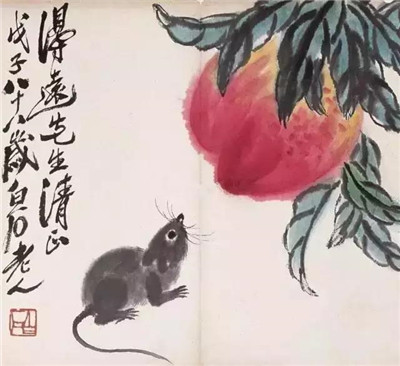 得远先生清正
戊子八十八歲白石老人